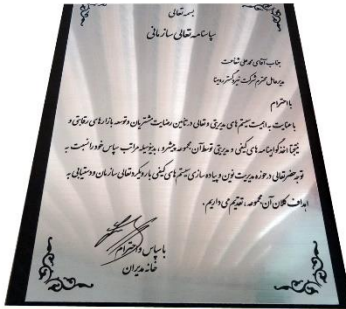 بسمه تعالی
سپاسنامه تعالی سازمانی
جناب آقای محمد علی شفاعت
مدیرعامل محترم شرکت نیروگستر رهبینا
با احترام
با عنایت به اهمیت سیستم های مدیریتی و تعالی در تأمین رضایت مشتریان و توسعه بازارهای رقابتی و
نتیجتا اخذ گواهینامه های کیفی و مدیریتی توسط آن مجموعه پیشرو ، بدینوسیله مراتب سپاس خود را نسبت به
توجه حضرتعالی در حوزه مدیریت نوین و پیاده سازی سیستم های کیفی با رویکرد تعالی سازمان و دستیابی به
اهداف کلان آن مجموعه ، تقدیم می داریم .
با سپاس و احترام
خانه مدیران